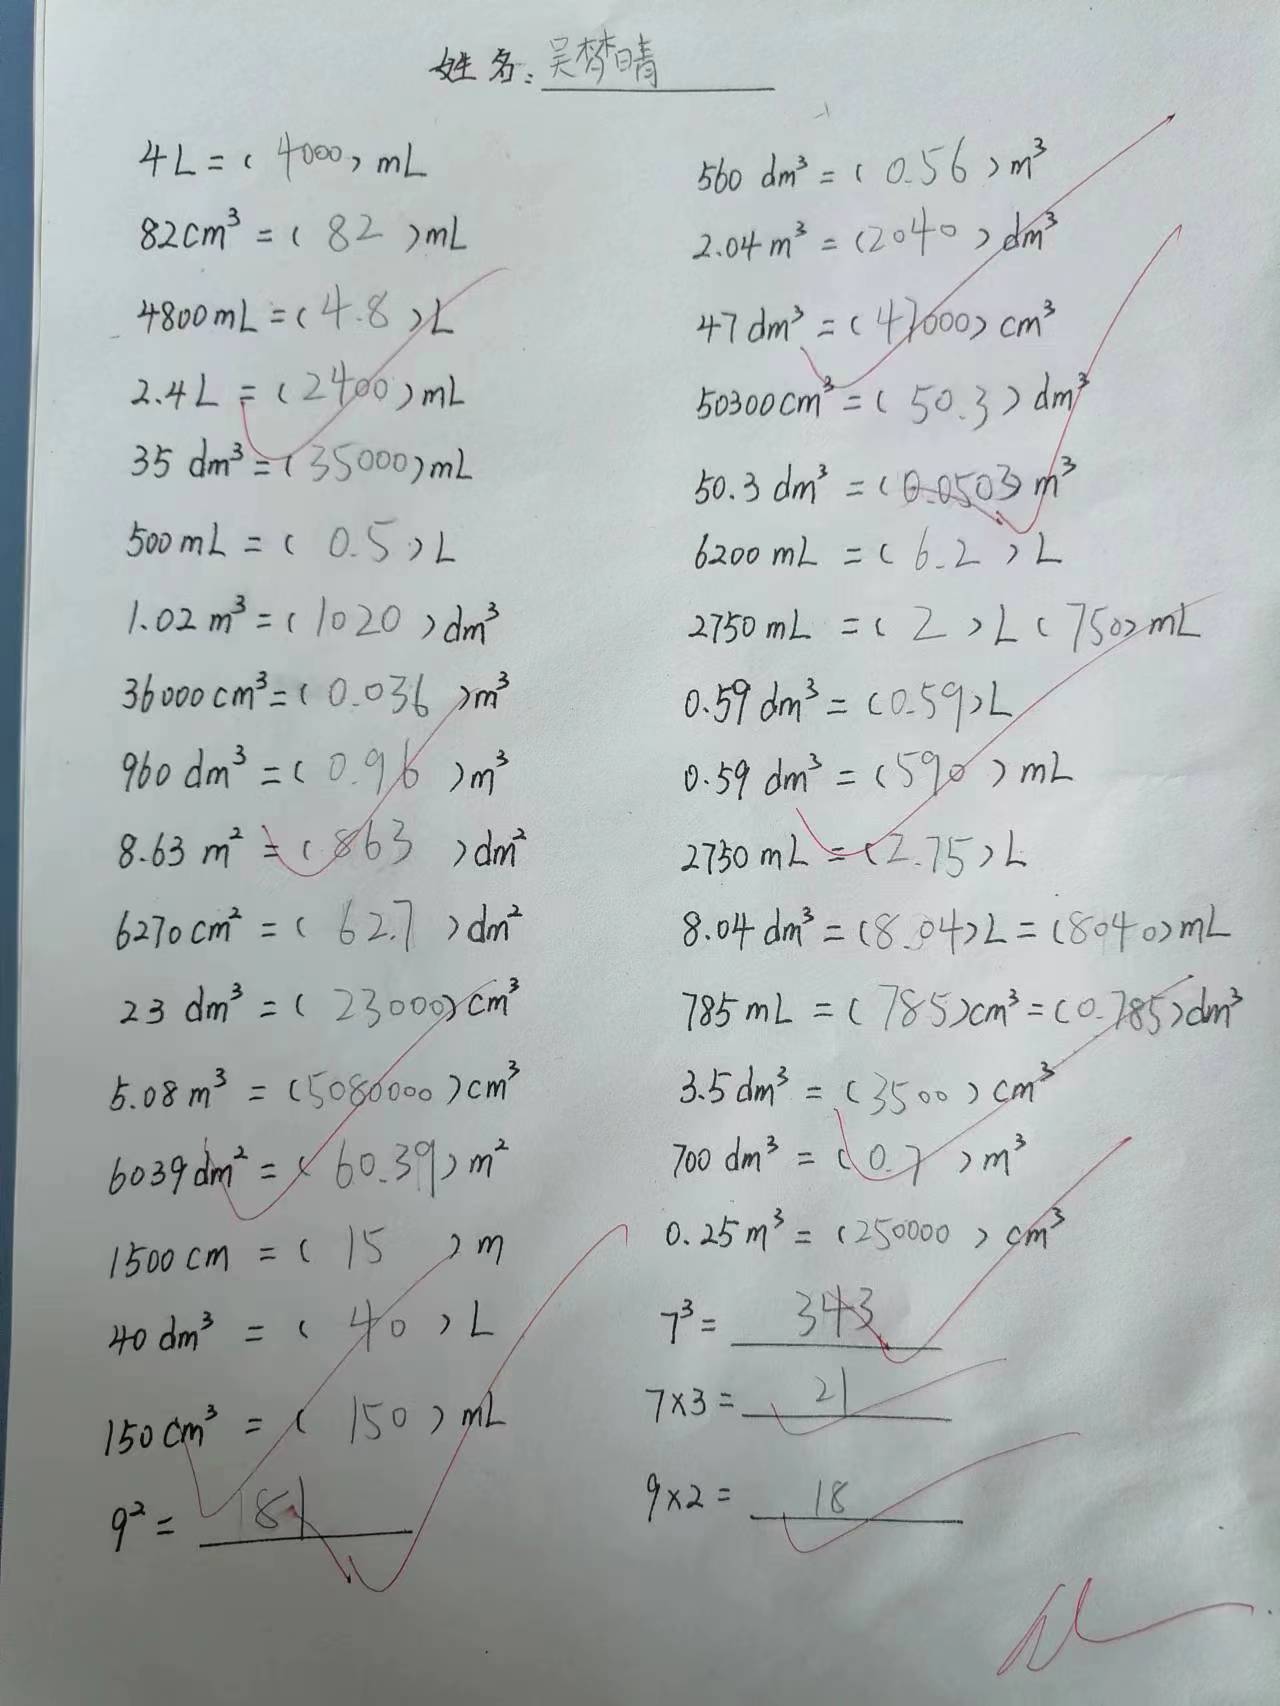 姓名：吴梦晴
4L=( 4000 ) mL
82cm³ = ( 82 ) mL
4800mL = ( 4.8 ) L
2.4L = ( 2400 ) mL
35 dm³ = ( 35000 ) mL
500mL = ( 0.5 ) L
1.02 m³ = ( 1020 ) dm³
36000 cm³ = ( 0.036 ) m³
960 dm³ = ( 0.96 ) m³
8.63 m² = ( 863 ) dm²
6270 cm² = ( 62.7 ) dm²
23 dm³ = ( 23000 ) cm³
5.08 m³ = ( 5080000 ) cm³
6039 dm² = ( 60.39 ) m²
1500 cm = ( 15 ) m
40 dm³ = ( 40 ) L
150 cm³ = ( 150 ) mL
9² = 181
560 dm³ = ( 0.56 ) m³
2.04 m³ = ( 2040 ) dm³
47 dm³ = ( 47000 ) cm³
50300 cm³ = ( 50.3 ) dm³
50.3 dm³ = ( 0.0503 ) m³
6200 mL = ( 6.2 ) L
2750 mL = ( 2 ) L ( 750 ) mL
0.59 dm³ = ( 0.59 ) L
0.59 dm³ = ( 590 ) mL
2750 mL = ( 2.75 ) L
8.04 dm³ = ( 8.04 ) L = ( 8040 ) mL
785 mL = ( 785 ) cm³ = ( 0.785 ) dm³
3.5 dm³ = ( 3500 ) cm³
700 dm³ = ( 0.7 ) m³
0.25 m³ = ( 250000 ) cm³
7³ = 343
7×3 = 21
9×2 = 18